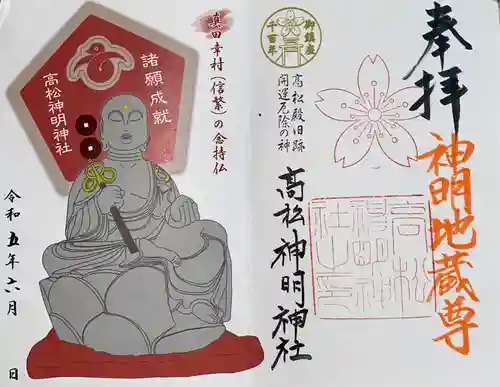 奉拝
神明地蔵尊
御鎮座
千百年
高松殿旧跡
開運厄除の神
高松神明神社
高松
神明神
社之印
真田幸村(信繁)の念持仏
諸願成就
高松神明神社
令和五年六月 日